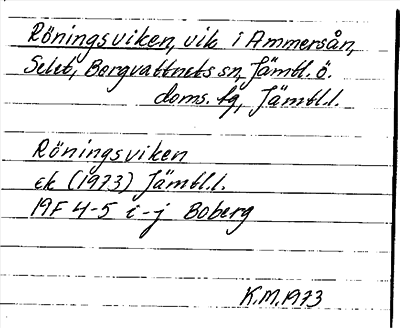 Röningsviken, vik i Ammersån,
Selet, Borgvattnets sn, Jämtl. ö.
doms. fg, Jämtl.l.
Röningsviken
ek (1973) Jämtl.l.
19F 4-5 i-j Boberg
K.M. 1973